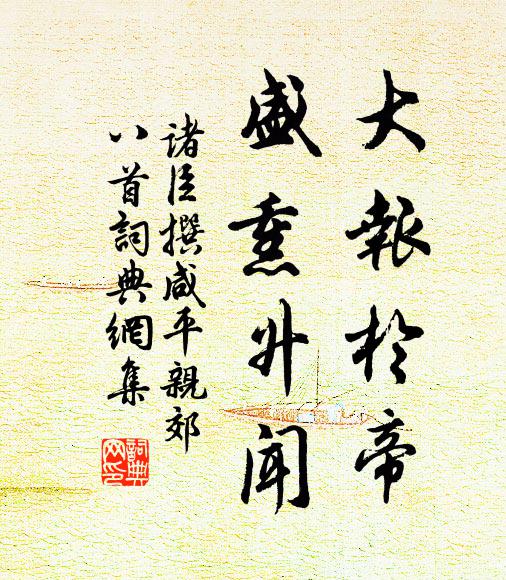 大報於帝
盛熏升聞
諸臣撰咸平親郊
八首詞典網集
詞典
网印